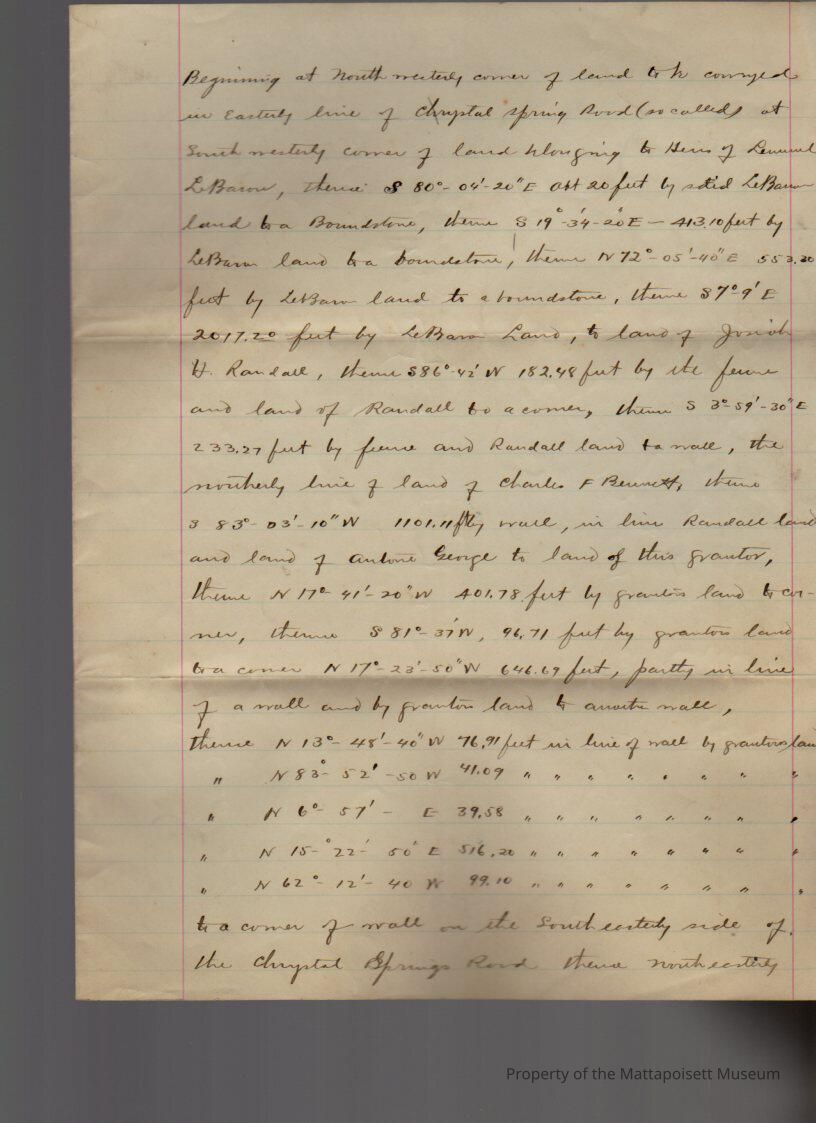 Beginning at North westerly corner of land to be conveyed
in Easterly line of Chrystal spring Road (so called) at
South westerly corner of land belonging to Heirs of Lemuel
LeBaron, thence S 80°-04'-20"E abt 20 feet by said LeBaron
land to a Boundstone, thence S 19°-34'-20"E — 413.10 feet by
LeBaron land to a boundstone, thence N 72°-05'-40"E 553.20
feet by LeBaron land to a boundstone, thence S7°-9' E
2017.20 feet by LeBaron Land, to land of Josiah
H. Randall, thence S86°-42' W 182.48 feet by the fence
and land of Randall to a corner, thence S 3°-59'-30"E
233.27 feet by fence and Randall land to wall, the
northerly line of land of Charles F Bennett, thence
S 83°-03'-10"W 1101.11 ft by wall, in line Randall land
and land of Antone George to land of this grantor,
thence N 17°-41'-20"W 401.78 feet by grantors land to cor-
ner, thence S 81°-37'W, 96.71 feet by grantors land
to a corner N 17°-23'-50"W 646.69 feet, partly in line
of a wall and by grantors land to another wall,
thence N 13°-48'-40"W 76.91 feet in line of wall by grantors land
" N 83°-52'-50 W 41.09 " " " " " " " "
" N 6°-57'- E 39.58 " " " " " " " "
" N 15-°22'-50" E 516.20 " " " " " " " "
" N 62°-12'-40 W 99.10 " " " " " " " "
to a corner of wall on the South easterly side of
the Chrystal Springs Road thence northeasterly
Property of the Mattapoisett Museum